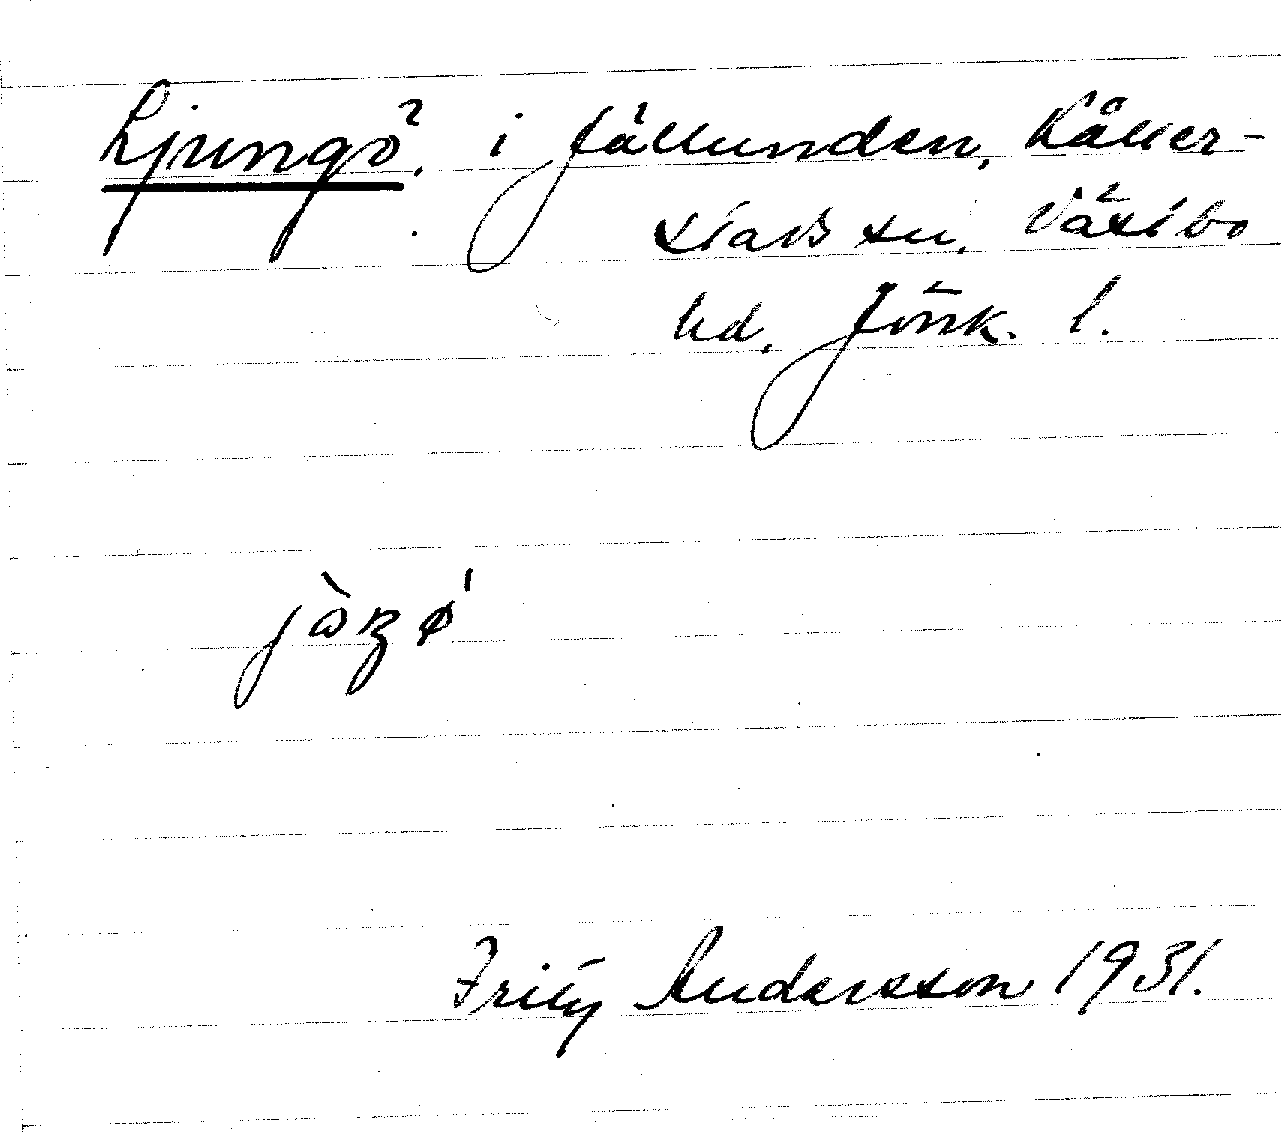 Ljungö, i Jällunden, Kåller-
stads sn. Västbo
hd. Jönk. l.
Fritz Andersson 1931.